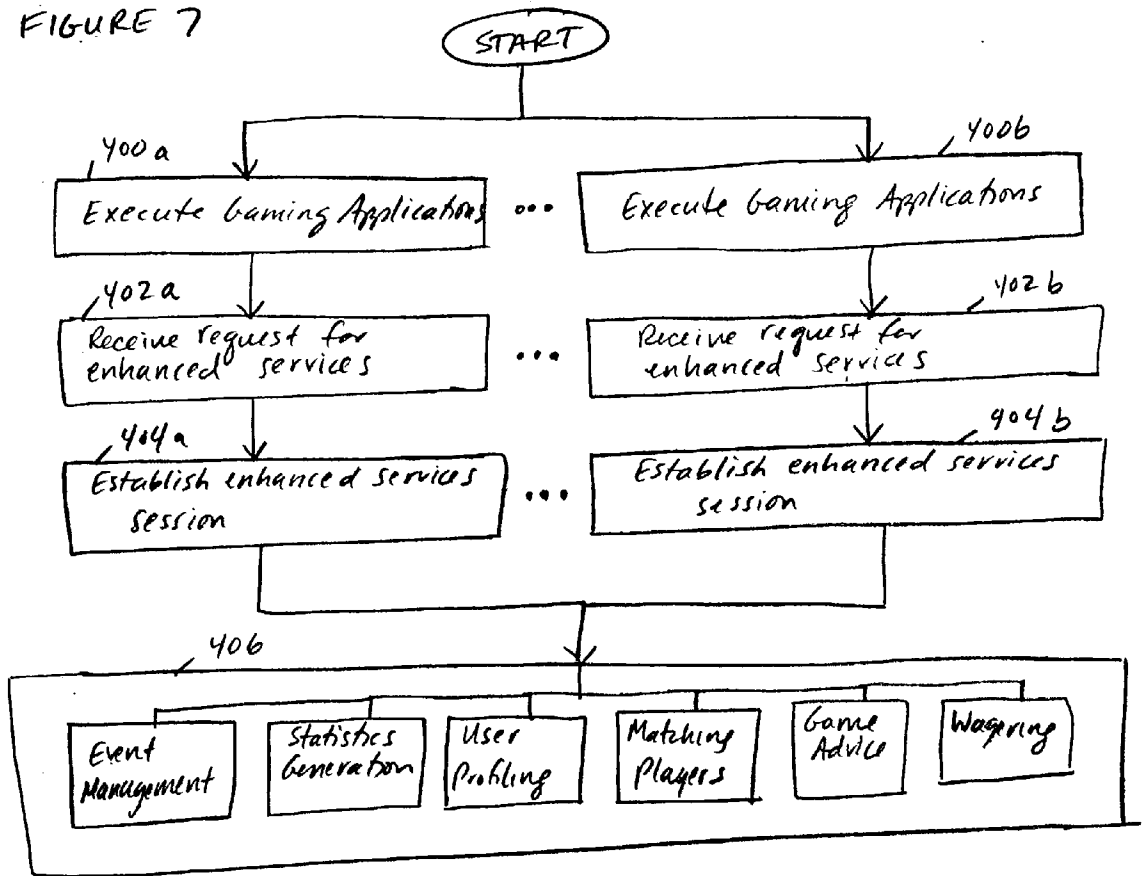 FIGURE 7
START
400a
400b
Execute Gaming Applications
...
Execute Gaming Applications
402a
402b
Receive request for
enhanced services
...
Receive request for
enhanced services
404a
404b
Establish enhanced services
session
...
Establish enhanced services
session
406
Event
Management
Statistics
Generation
User
Profiling
Matching
Players
Game
Advice
Wagering